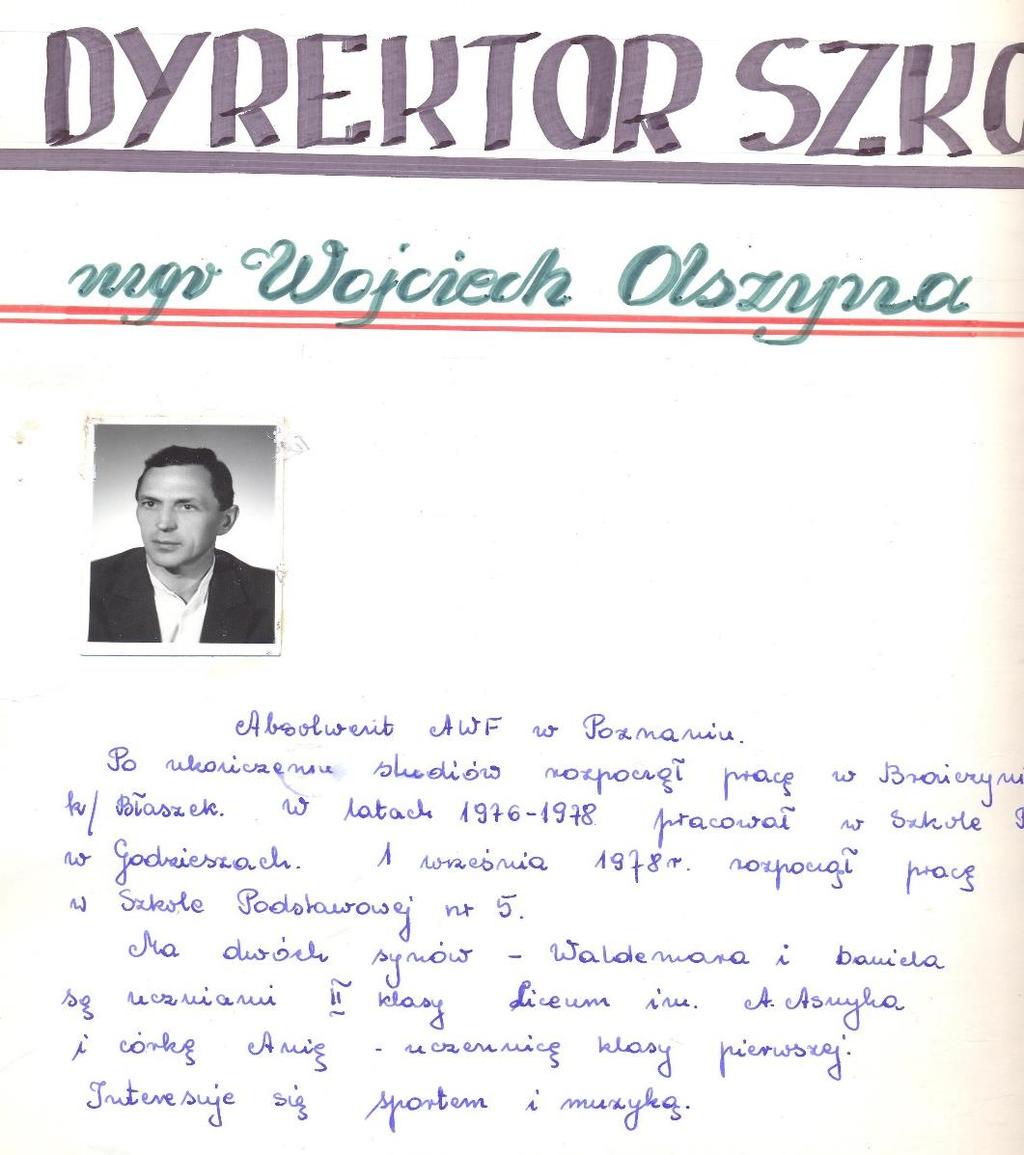 DYREKTOR SZKO
mgr Wojciech Olszyna
Absolwent AWF w Poznaniu.
Po ukończeniu studiów rozpoczął pracę w
k/ Błaszek. W latach 1976-1978 pracował w Szkole P
w Godzieszach. 1 września 1978r. rozpoczął pracę
w Szkole Podstawowej nr 5.
Ma dwóch synów - Waldemara i Daniela
są uczniami II klasy Liceum im. A. Asnyka
i córkę Anię - uczennicę klasy pierwszej.
Interesuje się sportem i muzyką.